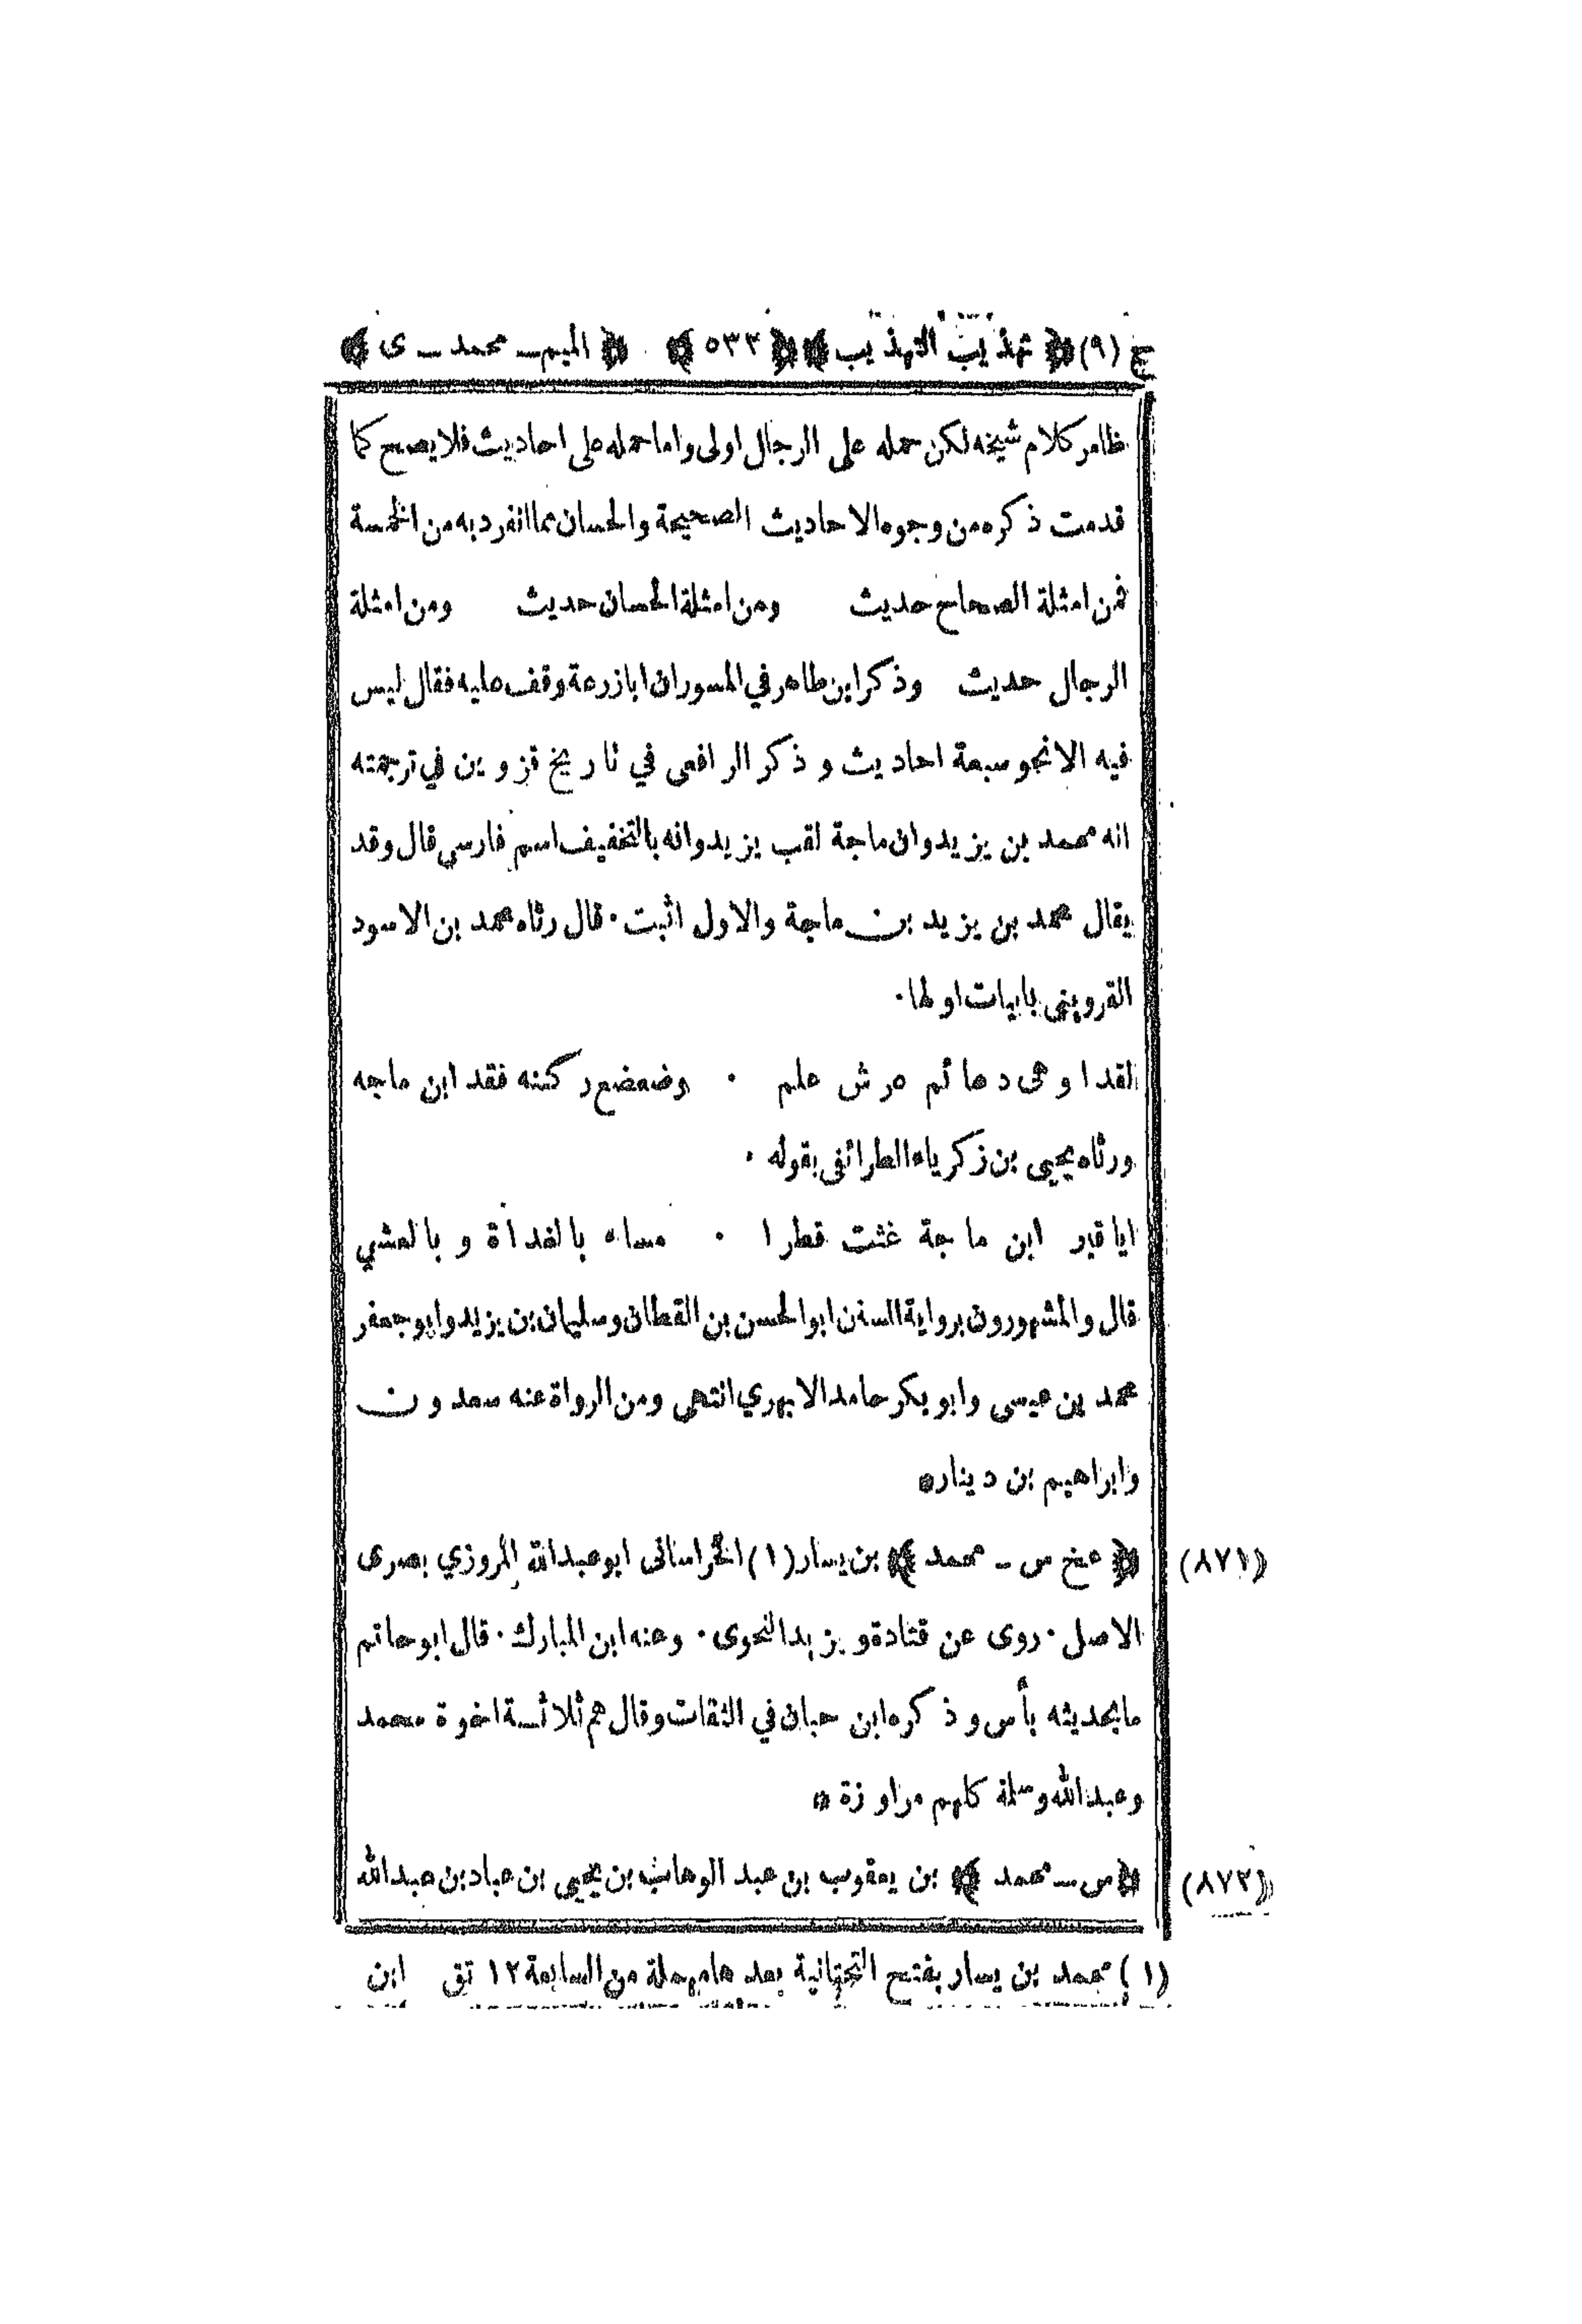 ج (٩) ﴿ تهذيب التهذيب ﴾ ﴿ ٥٣٢ ﴾ ﴿ الميم ـ محمد ـ ى ﴾
ظاهر كلام شيخه لكن حمله على الرجال اولى واما حمله على احاديث فلا يصح كما
قدمت ذكره من وجوه الاحاديث الصحيحة والحسان مما انفرد به من الخمسة
فمن امثلة الصحاح حديث ومن امثلة الحسان حديث ومن امثلة
الرجال حديث وذكر ابن طاهر في المسوران ابازرعة وقف عليه فقال ليس
فيه الا نحو سبعة احاديث و ذكر الرافعى في تاريخ قزوين في ترجمته
انه محمد بن يزيد وان ماجة لقب يزيد وانه بالتخفيف اسم فارسي قال وقد
يقال محمد بن يزيد بن ماجة والاول اثبت ٠ قال رثاه محمد بن الاسود
القزوينى بابيات اولها ٠
لقد اوهى دعائم عرش علم ٠ وضعضع ركنه فقد ابن ماجه
ورثاه يحيى بن زكرياء الطرائفى بقوله ٠
ايا قبر ابن ماجة غثت قطرا ٠ مساء بالغداة و بالعشي
قال والمشهورون برواية السنن ابو الحسن بن القطان وسليمان بن يزيد وابو جعفر
محمد بن عيسى وابو بكر حامد الابهري انتهى ومن الرواة عنه سعدون
وابراهيم بن دينار *
(٨٧١) ﴿ عخ س ـ محمد ﴾ بن يسار (١) الخراسانى ابو عبدالله المروزي بصرى
الاصل ٠ روى عن قتادة ويزيد النحوى ٠ وعنه ابن المبارك ٠ قال ابو حاتم
ما بحديثه بأس و ذكره ابن حبان في الثقات وقال هم ثلاثة اخوة محمد
وعبدالله وسلمة كلهم مراوزة *
(٨٧٢) ﴿ س ـ محمد ﴾ بن يعقوب بن عبد الوهاب بن يحيى بن عباد بن عبدالله
(١) محمد بن يسار بفتح التحتانية بعدها مهملة من السابعة ١٢ تق ابن